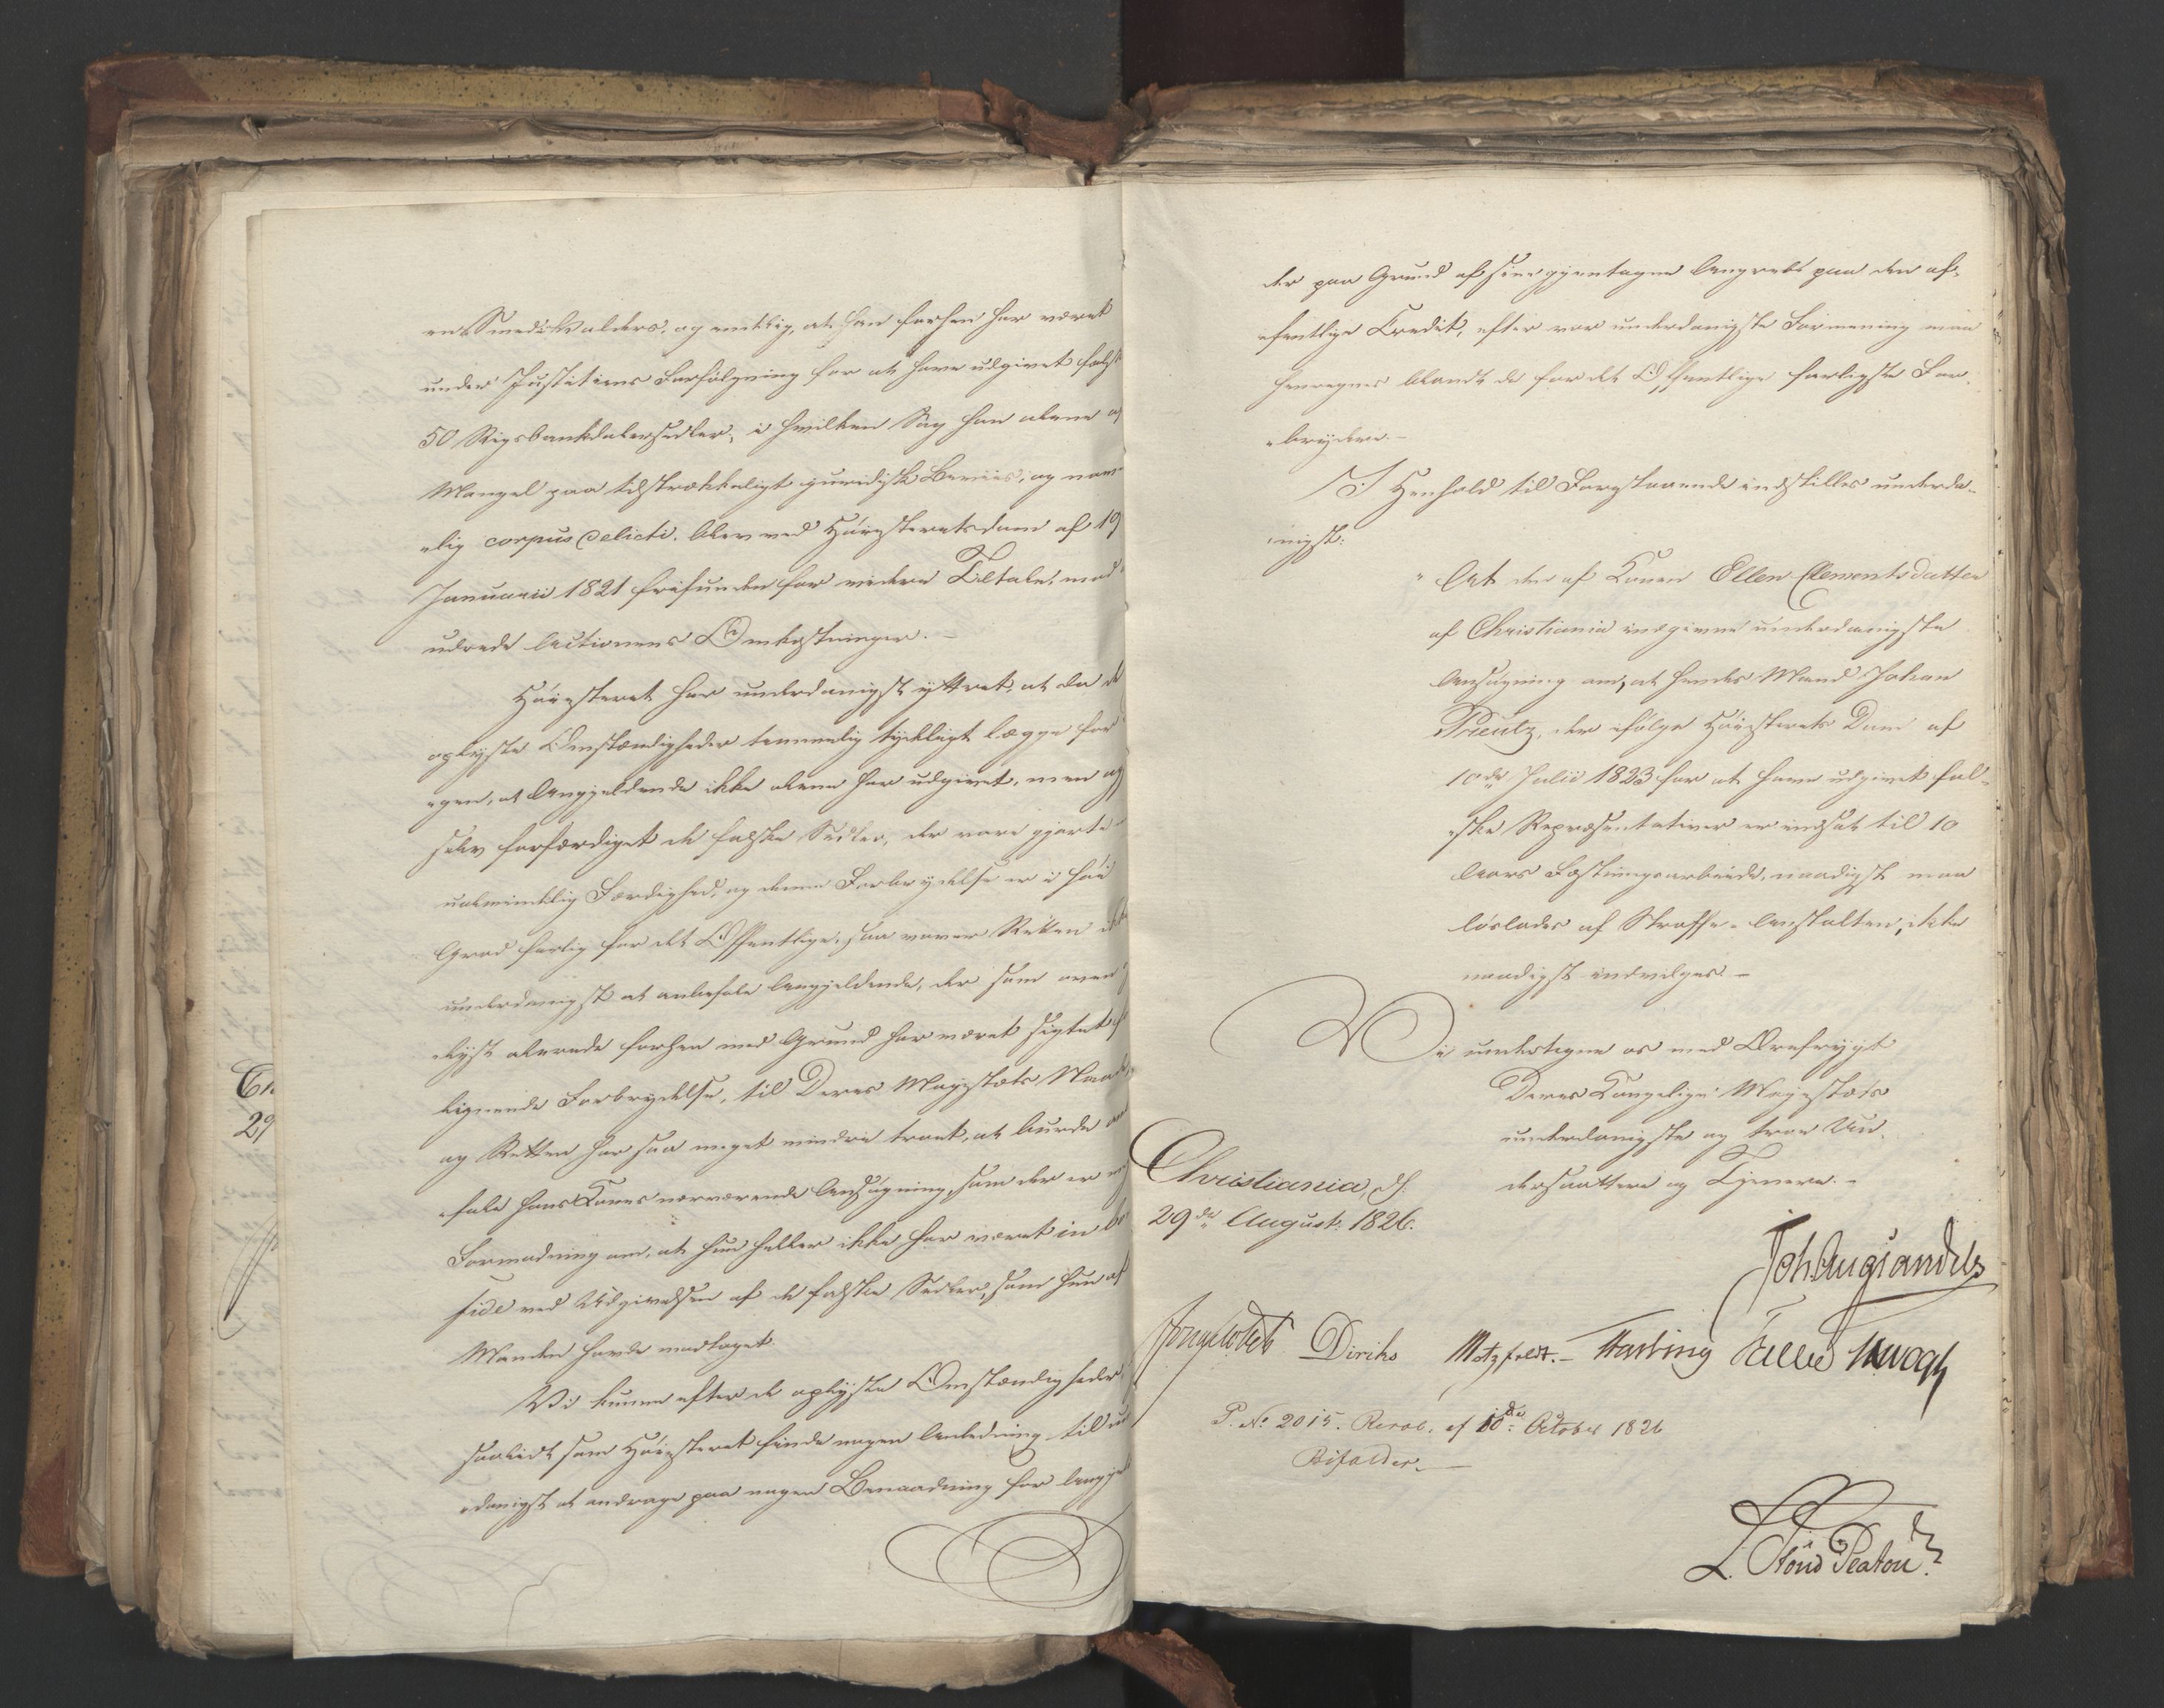 en Smeds Alders, og endelig, at han forhen har været
under Justitiens Forfølgning for at have udgivet falsk
50 Rigsbankdalersedler, i hvilken Sag han alene af
Mangel paa tilstrækkeligt juridisk Beviis, og nem-
„lig corpus delicti, blev ved Høiesteretsdom af 19
Januarii 1821 frifunden for videre Tiltale, mod
udrede Actionens Omkostninger.–
Høiesteret har underdanigst yttret, at da de
oplyste Omstændigheder temmelig tydeligt lægge for
„gen, at Angjeldende ikke alene har udgivet, men og
selv forfærdiget de falske Sedler, der vare gjorte
ualmindelig Færdighed, og denne Forbrydelse er i høi
Grad farlig for det Offentlige, saa vover Retten ikke
underdanigst at anbefale Angjeldende, der som oven
„lyst allerede forhen med Grund har været sigtet f
lignende Forbrydelse, til Deres Majestæts Naade
og Retten har saa meget mindre troet, at burde an
„fale hans Kones nærværende Ansøgning, som der er
Formodning om, at hun heller ikke har været in bo
fide ved Udgivelsen af de falske Sedler, som hun af
Manden havde modtaget.
Vi kunne efter de oplyste Omstændigheder
saalidt som Høiesteret finde nogen Anledning til un
„danigst at andrage paa nogen Benaadning for Angje
Ch
29
der paa Grund af sine gjentagne Angreb paa den of-
„fentlige Credit, efter vor underdanigste Formening maa
henregnes blandt de for det Offentlige farligste For-
„brydere.–
I Henhold til Foranstaaende indstilles underda-
„nigst:
„At den af Konen Ellen Clementsdatter
af Christiania indgivne underdanigste
Ansøgning om, at hendes Mand Johan
Preutz, der ifølge Høiesterets Dom af
10de Julii 1823 for at have udgivet fal-
„ske Repræsentativer er indsat til 10
Aars Fæstningsarbeide, naadigst maa
løslades af Straffe-Anstalten, ikke
naadigst indvilges.–
Vi undertegne os med Ærefrygt
Deres Kongelige Majestæts
underdanigste og troe Un-
dersaattere og Tjenere.–
Christiania, d.
29de August 1826.
Joh Aug Sandels
Diriks Motzfeldt.– Fasting Krogh
P. No 2015. Resol. af 10de October 1826
Bifaldes.–